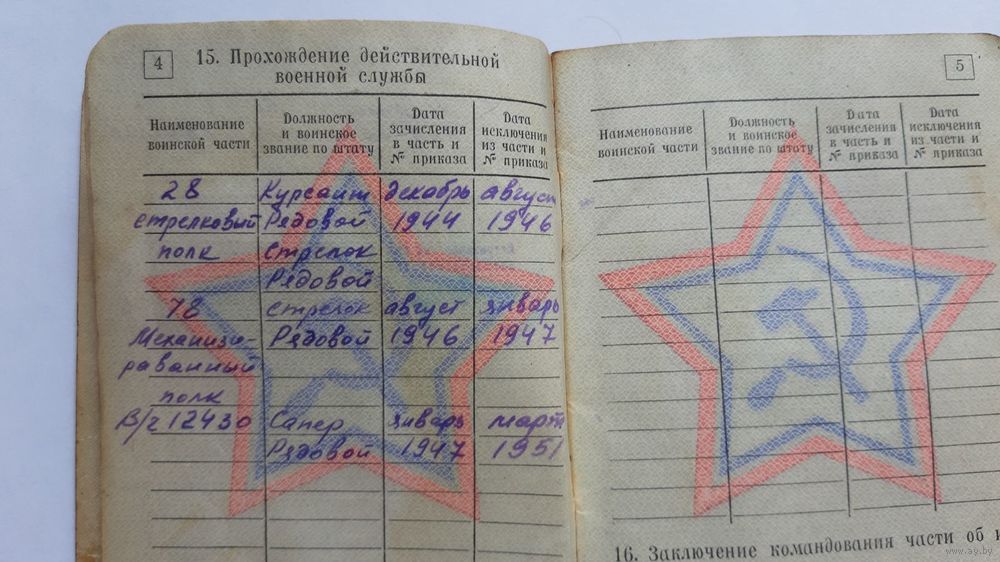 4
15. Прохождение действительной
военной службы
Наименование
воинской части
Должность
и воинское
звание по штату
Дата
зачисления
в часть и
№ приказа
Дата
исключения
из части и
№ приказа
28 Курсант декабрь август
стрелковый Рядовой 1944 1946
полк Стрелок
Рядовой
78 стрелок август январь
Механизи- Рядовой 1946 1947
рованный
полк
В/ч 12430 Сапер январь март
Рядовой 1947 1951
5
Наименование
воинской части
Должность
и воинское
звание по штату
Дата
зачисления
в часть и
№ приказа
Дата
исключения
из части и
№ приказа
16. Заключение командования части об
www.ay.by